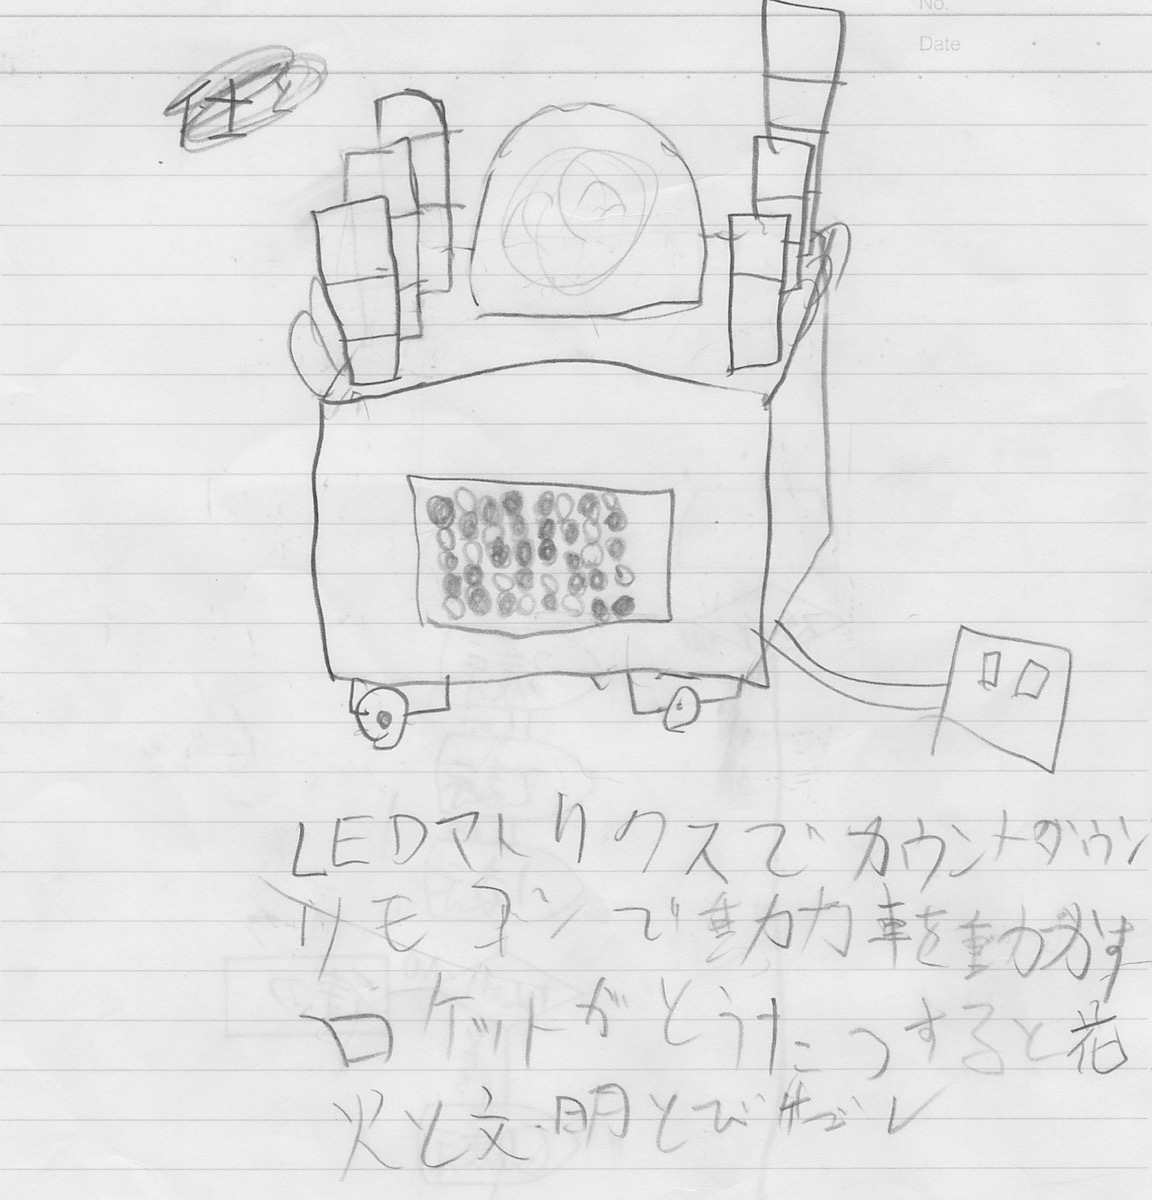 No.
Date
LEDマトリクスでカウントダウン
リモコンで動力車を動かす
ロケットがとうたつすると花
火と文明と